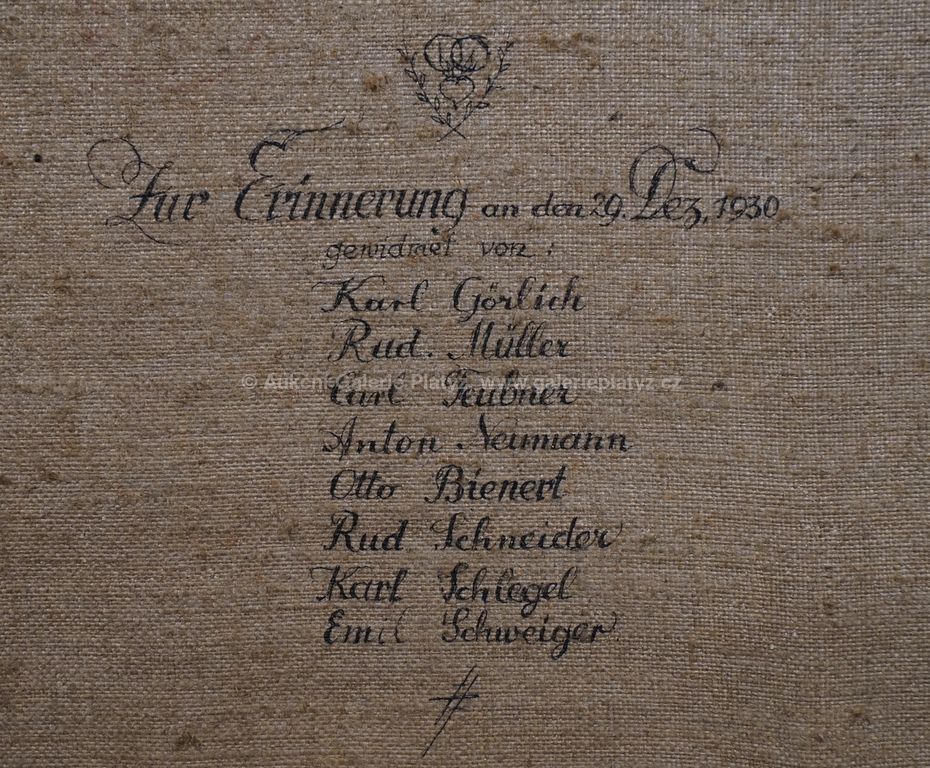 Zur Erinnerung an den 29. Dez. 1930
gewidmet von:
Karl Görlich
Rud. Müller
© Aukční Galerie Platýz, www.galerieplatyz.cz
Carl Teubner
Anton Neumann
Otto Bienert
Rud. Schneider
Karl Schlegel
Emil Schweiger